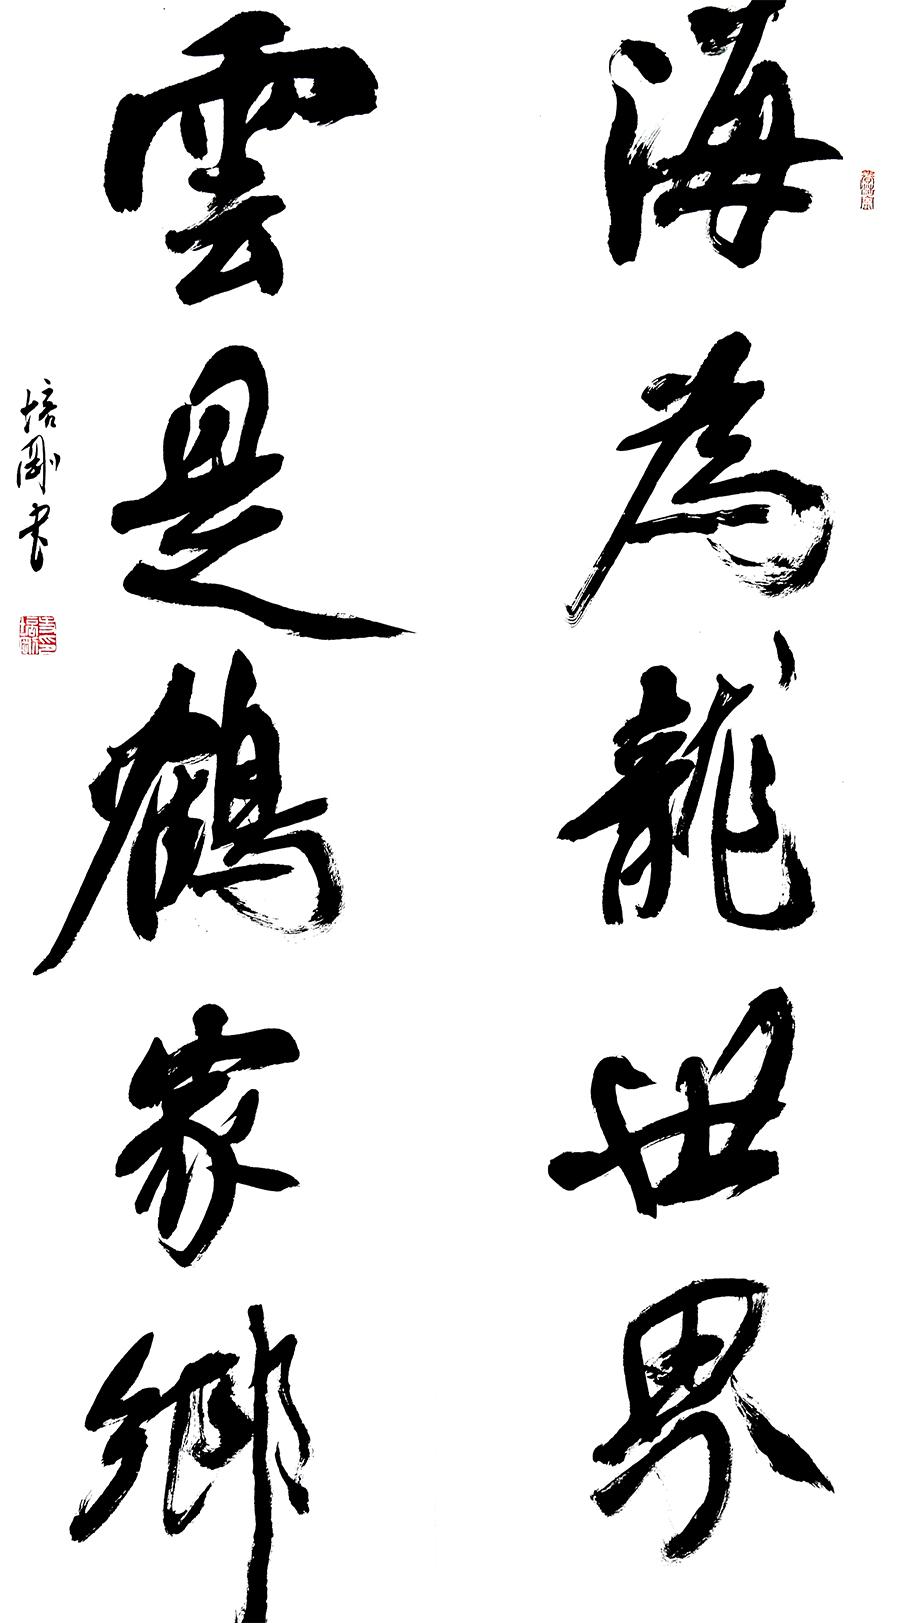 海為龍世界
雲是鶴家鄉
培剛书